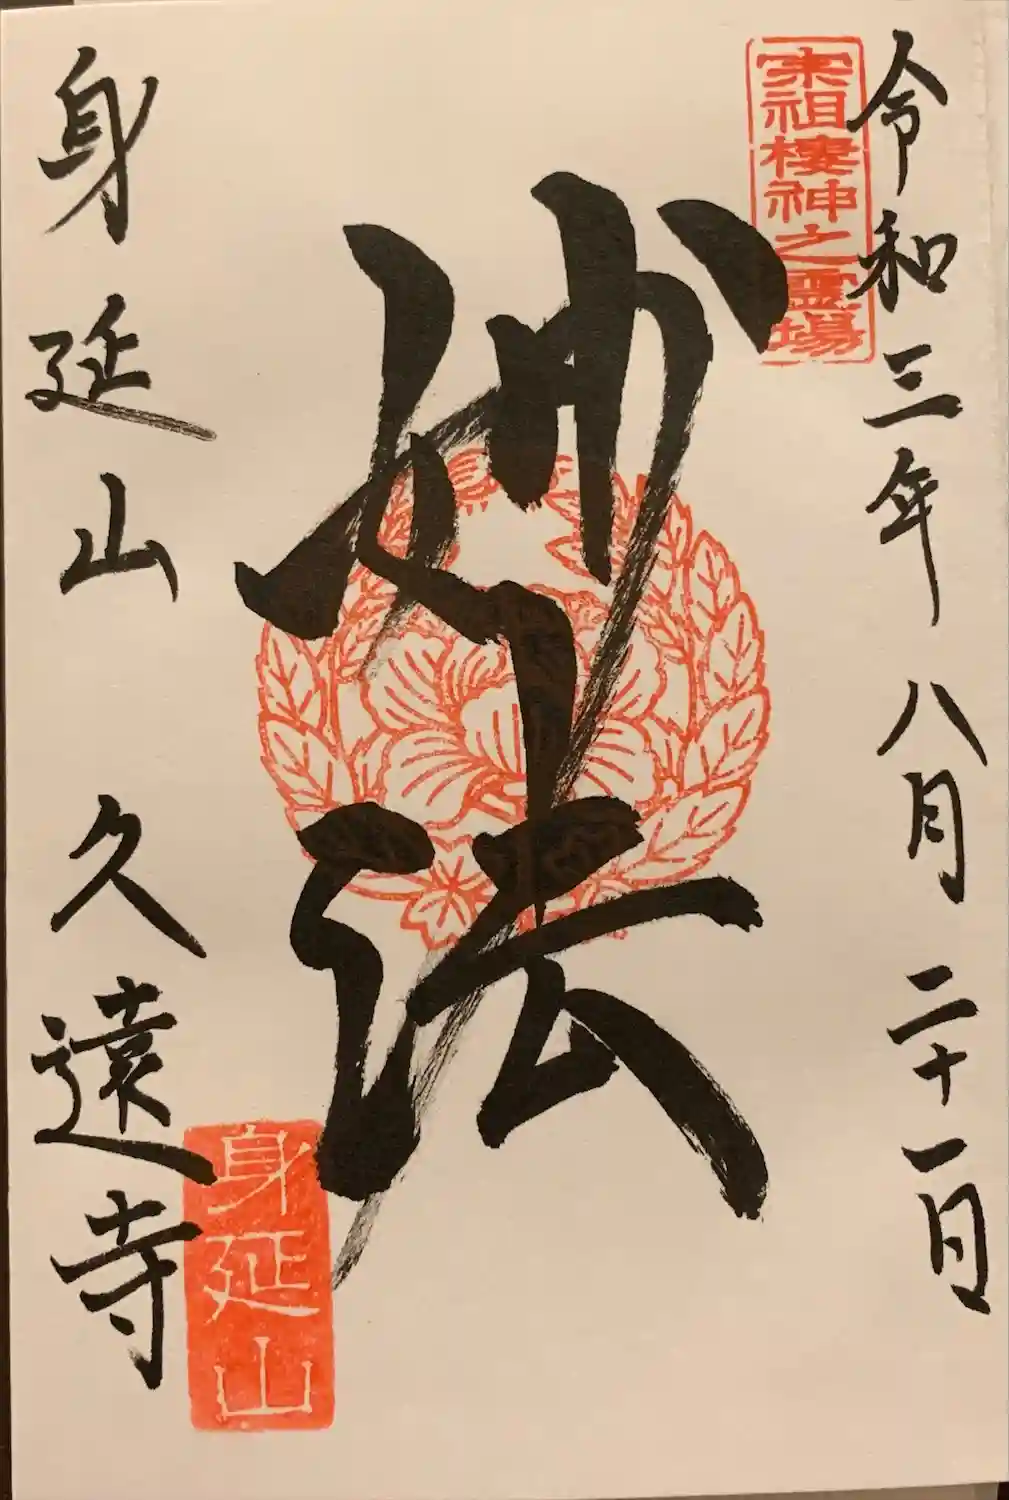 令和三年八月二十一日
宗祖棲神之霊場
妙法
身延山 久遠寺
身延山